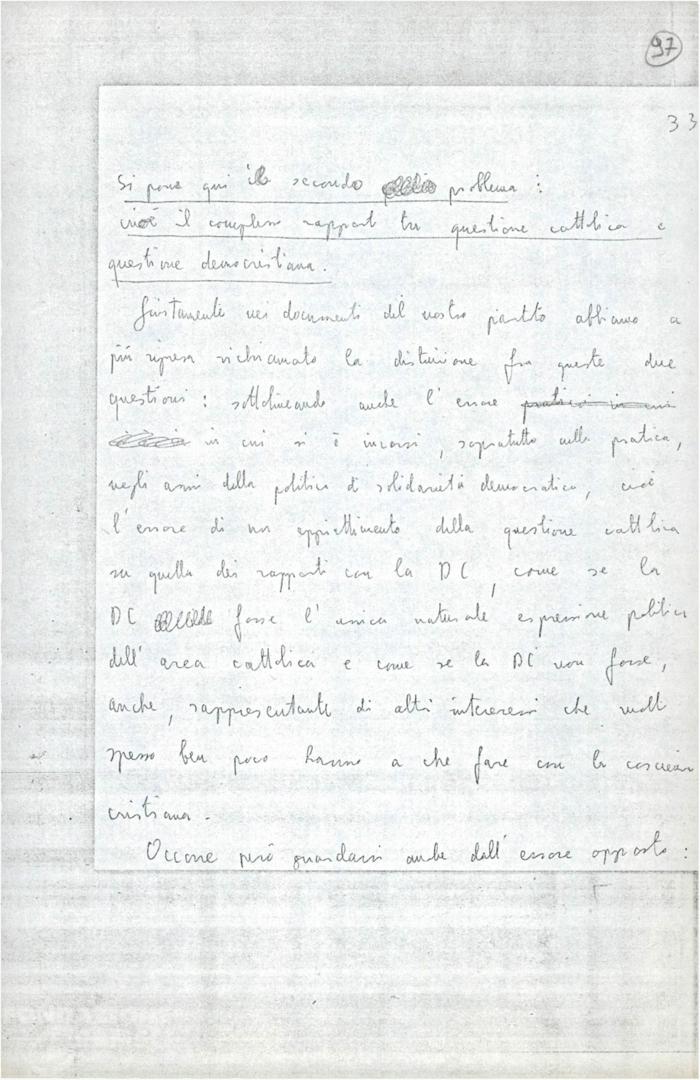 97
33
Si pone qui il secondo problema :
cioè il complesso rapporto tra questione cattolica e
questione democristiana.
Giustamente nei documenti del nostro partito abbiamo a
più riprese richiamato la distinzione fra queste due
questioni : sottolineando anche l'errore
in cui si è incorsi, sopratutto nella pratica,
negli anni della politica di solidarietà democratica, cioè
l'errore di un appiattimento della questione cattolica
su quella dei rapporti con la DC, come se la
DC fosse l'unica naturale espressione politica
dell'area cattolica e come se la DC non fosse,
anche, rappresentante di altri interessi che molto
spesso ben poco hanno a che fare con la coscienza
cristiana.
Occorre però guardarsi anche dall'errore opposto :